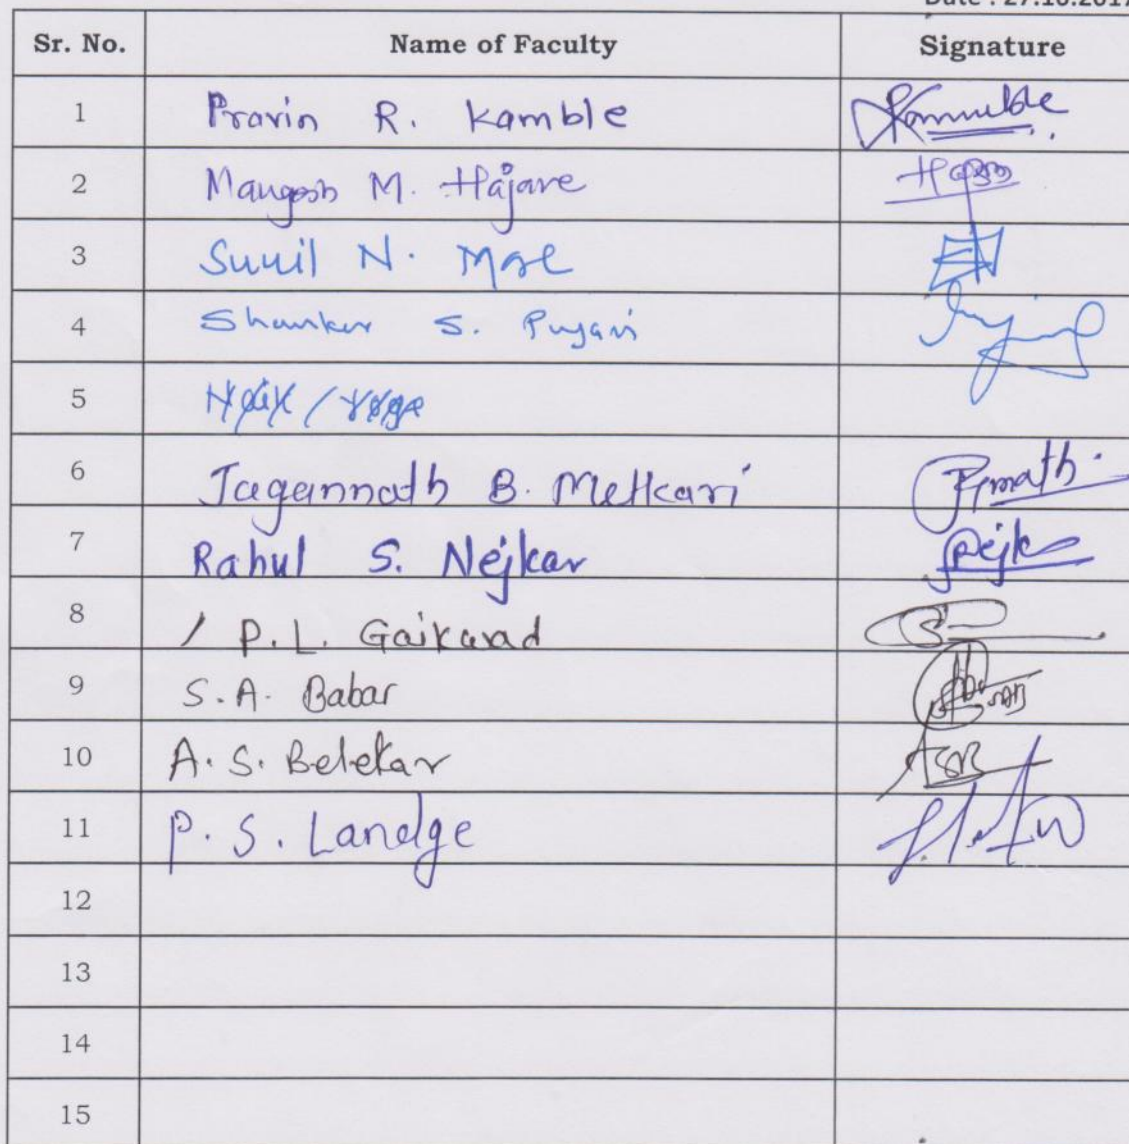 Date : 27.10.2017
Sr. No. Name of Faculty Signature
1 Pravin R. Kamble Kamble
2 Mangesh M. Hajare
3 Sunil N. Mal
4 Shankar S. Pujari
5
6 Jagannath B. Metkari
7 Rahul S. Nejkar
8 / P.L. Gaikwad
9 S.A. Babar
10 A.S. Belekar ASB
11 P.S. Landge
12
13
14
15